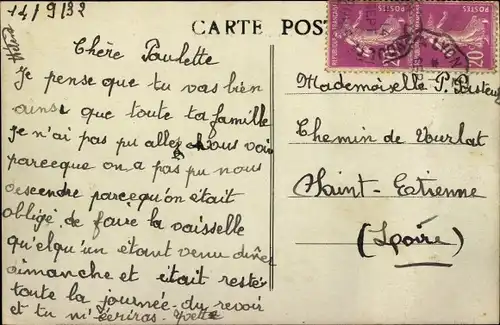 14/9/32
CARTE POS
Chère Paulette
Je pense que tu vas bien
ainsi que toute ta famille
je n'ai pas pu aller vous voir
parceque on a pas pu nous
descendre parcequ'on était
obligé de faire la vaisselle
quelqu'un étant venu dîner
dimanche et était resté
toute la journée. du revoir
et tu m'écriras. Yvette
Mademoiselle P.
Chemin de Vourlat
Saint-Etienne
(Loire)
POSTES
LYON